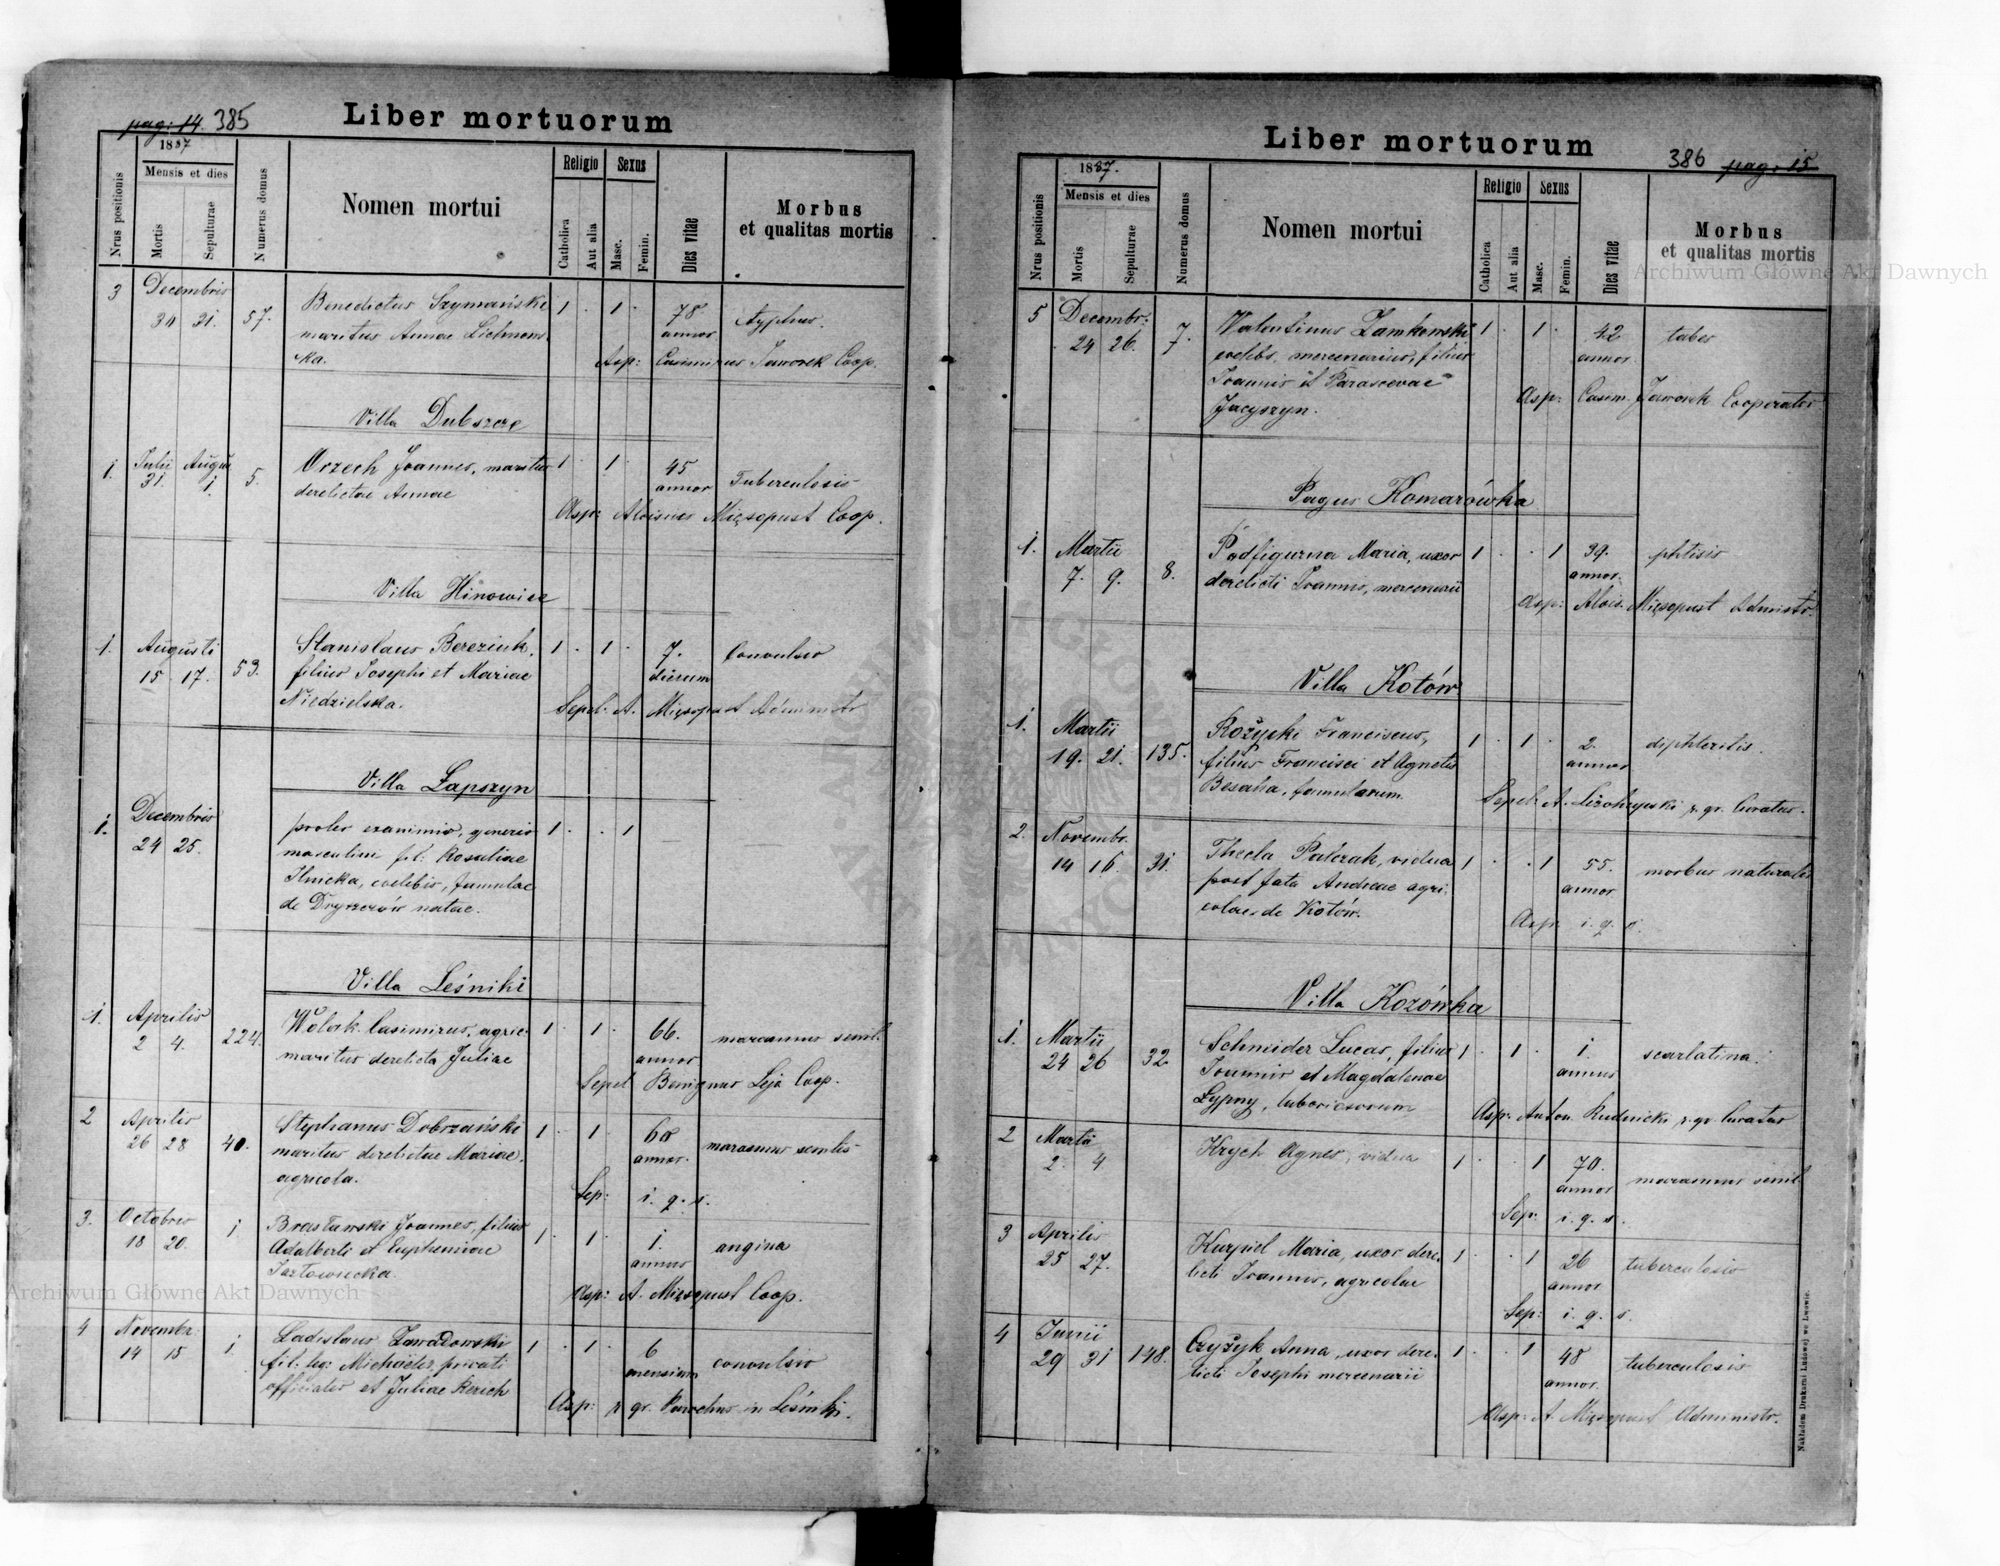 pag: 14. 385
Liber mortuorum
1887
Nrus positionis
Mensis et dies
Mortis
Sepulturae
Numerus domus
Nomen mortui
Religio
Catholica
Aut alia
Sexus
Masc.
Femin.
Dies vitae
Morbus
et qualitas mortis
3 Decembris
31 57. Benedictus Szymański 1 1 78 typhus.
maritus Annae annor
ka. Asp: Casimirus Jaworek Coop.
Villa Dubszcze
1. Julii Augu
31. 1. 5. Orzech Joannes, maritus 1 1 45 Tuberculosis
derelictae Annae annor
Asp: Aloisius Mięsopust Coop.
Villa Hinowice
1. Augusti
15 17. 53. Stanislaus Bereziuk, 1 1 7. Convulsio
filius Josephi et Mariae dierum
Niedzielska. Sepel. A. Mięsopust Administr
Villa Łapszyn
1. Decembris
24 25. proles exanimis, generis 1 1
masculini fil: Rosaliae
Ilnicka, coelebis, famulae
de Dryszczów natae.
Villa Leśniki
1. Aprilis
2 4. 224. Wolak Casimirus, agric. 1 1 66. marasmus senil.
maritus derelicta Juliae annor
Sepel Benignus Leja Coop.
2 Aprilis
26 28 40. Stephanus Dobrzański 1 1 60 marasmus senilis
maritus derelictae Mariae, annor.
agricola. Sep: i. q. s.
3. Octobris
18 20. 1 Brasławski Joannes, filius 1 1 1. angina
Adalberti et Euphemiae annus
Jazłowiecka. Asp: A. Mięsopust Coop.
4 Novembr.
14 15 1 Ladislaus Zawadowski 1 1 6 convulsio
fil. leg: Michaëlis, privati mensium
officialis et Juliae Kerich
Asp: r gr. Parochus in Leśniki.
Liber mortuorum
386 pag. 15
1887.
Nrus positionis
Mensis et dies
Mortis
Sepulturae
Numerus domus
Nomen mortui
Religio
Catholica
Aut alia
Sexus
Masc.
Femin.
Dies vitae
Morbus
et qualitas mortis
Archiwum Główne Akt Dawnych
5 Decembr.
24 26. 7. Valentinus Zamkowski 1 1 42 tabes
coelebs, mercenarius, filius annor.
Joannis et Parascevae
Jacyszyn. Asp: Casim. Jaworek Cooperator
Pagus Komarówka
1. Martii
7. 9. 8. Podfigurna Maria, uxor 1 1 39. phtisis
derelicti Joannis, mercenarii annor.
Asp: Alois. Mięsopust Admistr.
Villa Kotów
1. Martii
19. 21. 135. Rożycki Franciscus, 1 1 2. diphteritis.
filius Francisci et Agnetis annor
Besaha, famulorum. Sepel: A. r. gr. Curatus.
2. Novembr.
14 16. 31. Thecla Patrzak, vidua 1 1 55. morbus naturalis
post fata Andreae agri- annor
colae de Kotów. Asp. i. q. s.
Villa Kozówka
1. Martii
24 26 32 Schneider Lucas, filius 1 1 1. scarlatina.
Joannis et Magdalenae annus
Łypny, laboriosorum Asp: Anton. Rudnicki r. gr. Curatus
2 Martii
2. 4 Krych Agnes, vidua 1 1 70. marasmus senil
annor
Sep: i. q. s.
3 Aprilis
25 27. Kurpiel Maria, uxor dere- 1 1 26 tuberculosis
licti Joannis, agricolae annor
Sep: i. q. s.
4 Junii
29 31 148. Czyżyk Anna, uxor dere- 1 1 48 tuberculosis
licti Josephi mercenarii annor.
Asp: A. Mięsopust Administr.
Nakładem Drukarni Ludowej we Lwowie.
Archiwum Główne Akt Dawnych